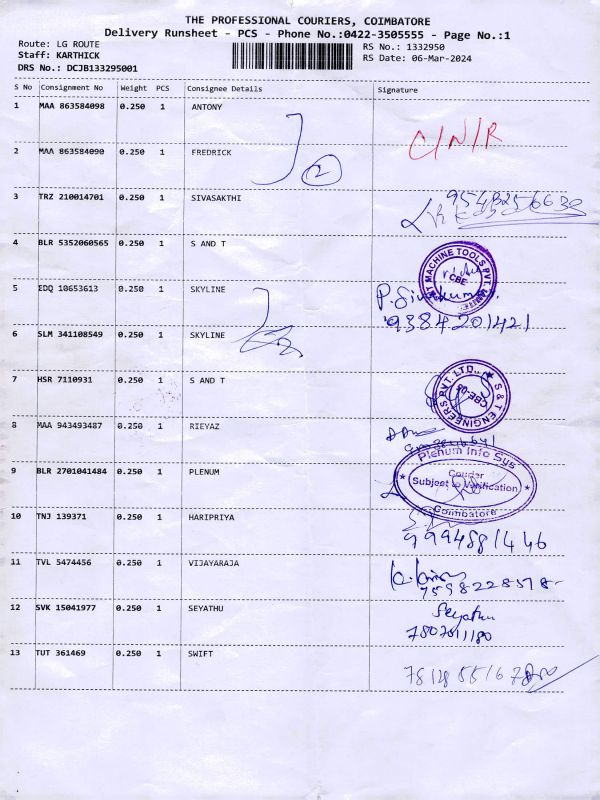 THE PROFESSIONAL COURIERS, COIMBATORE
Delivery Runsheet - PCS - Phone No.:0422-3505555 - Page No.:1
Route: LG ROUTE
RS No.: 1332950
Staff: KARTHICK
RS Date: 06-Mar-2024
DRS No.: DCJB133295001
S No Consignment No Weight PCS Consignee Details Signature
1 MAA 863584098 0.250 1 ANTONY
C/N/R
2 MAA 863584090 0.250 1 FREDRICK
2
3 TRZ 210014701 0.250 1 SIVASAKTHI
4 BLR 5352060565 0.250 1 S AND T
MACHINE TOOLS PVT.
CBE
5 EDQ 10653613 0.250 1 SKYLINE
P. Sivakumar
9384201421
6 SLM 341108549 0.250 1 SKYLINE
7 HSR 7110931 0.250 1 S AND T
S & T ENGINEERS PVT. LTD.,
CBE-05
8 MAA 943493487 0.250 1 RIEYAZ
9 BLR 2701041484 0.250 1 PLENUM
Plenum Info Sys
Courier
Subject to Verification
Coimbatore
10 TNJ 139371 0.250 1 HARIPRIYA
9994881446
11 TVL 5474456 0.250 1 VIJAYARAJA
12 SVK 15041977 0.250 1 SEYATHU
Seyathu
13 TUT 361469 0.250 1 SWIFT